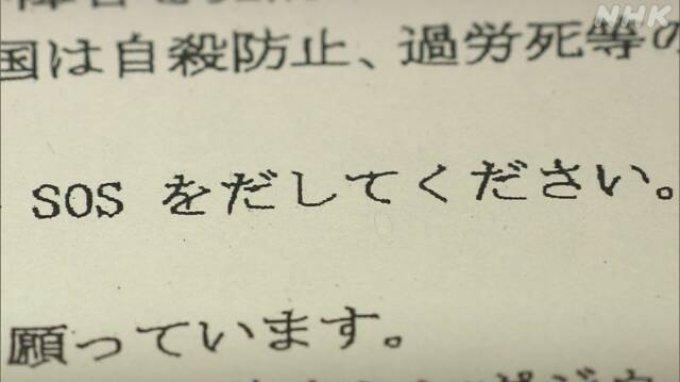 NHK
国は自殺防止、過労死等の
SOS をだしてください。
願っています。